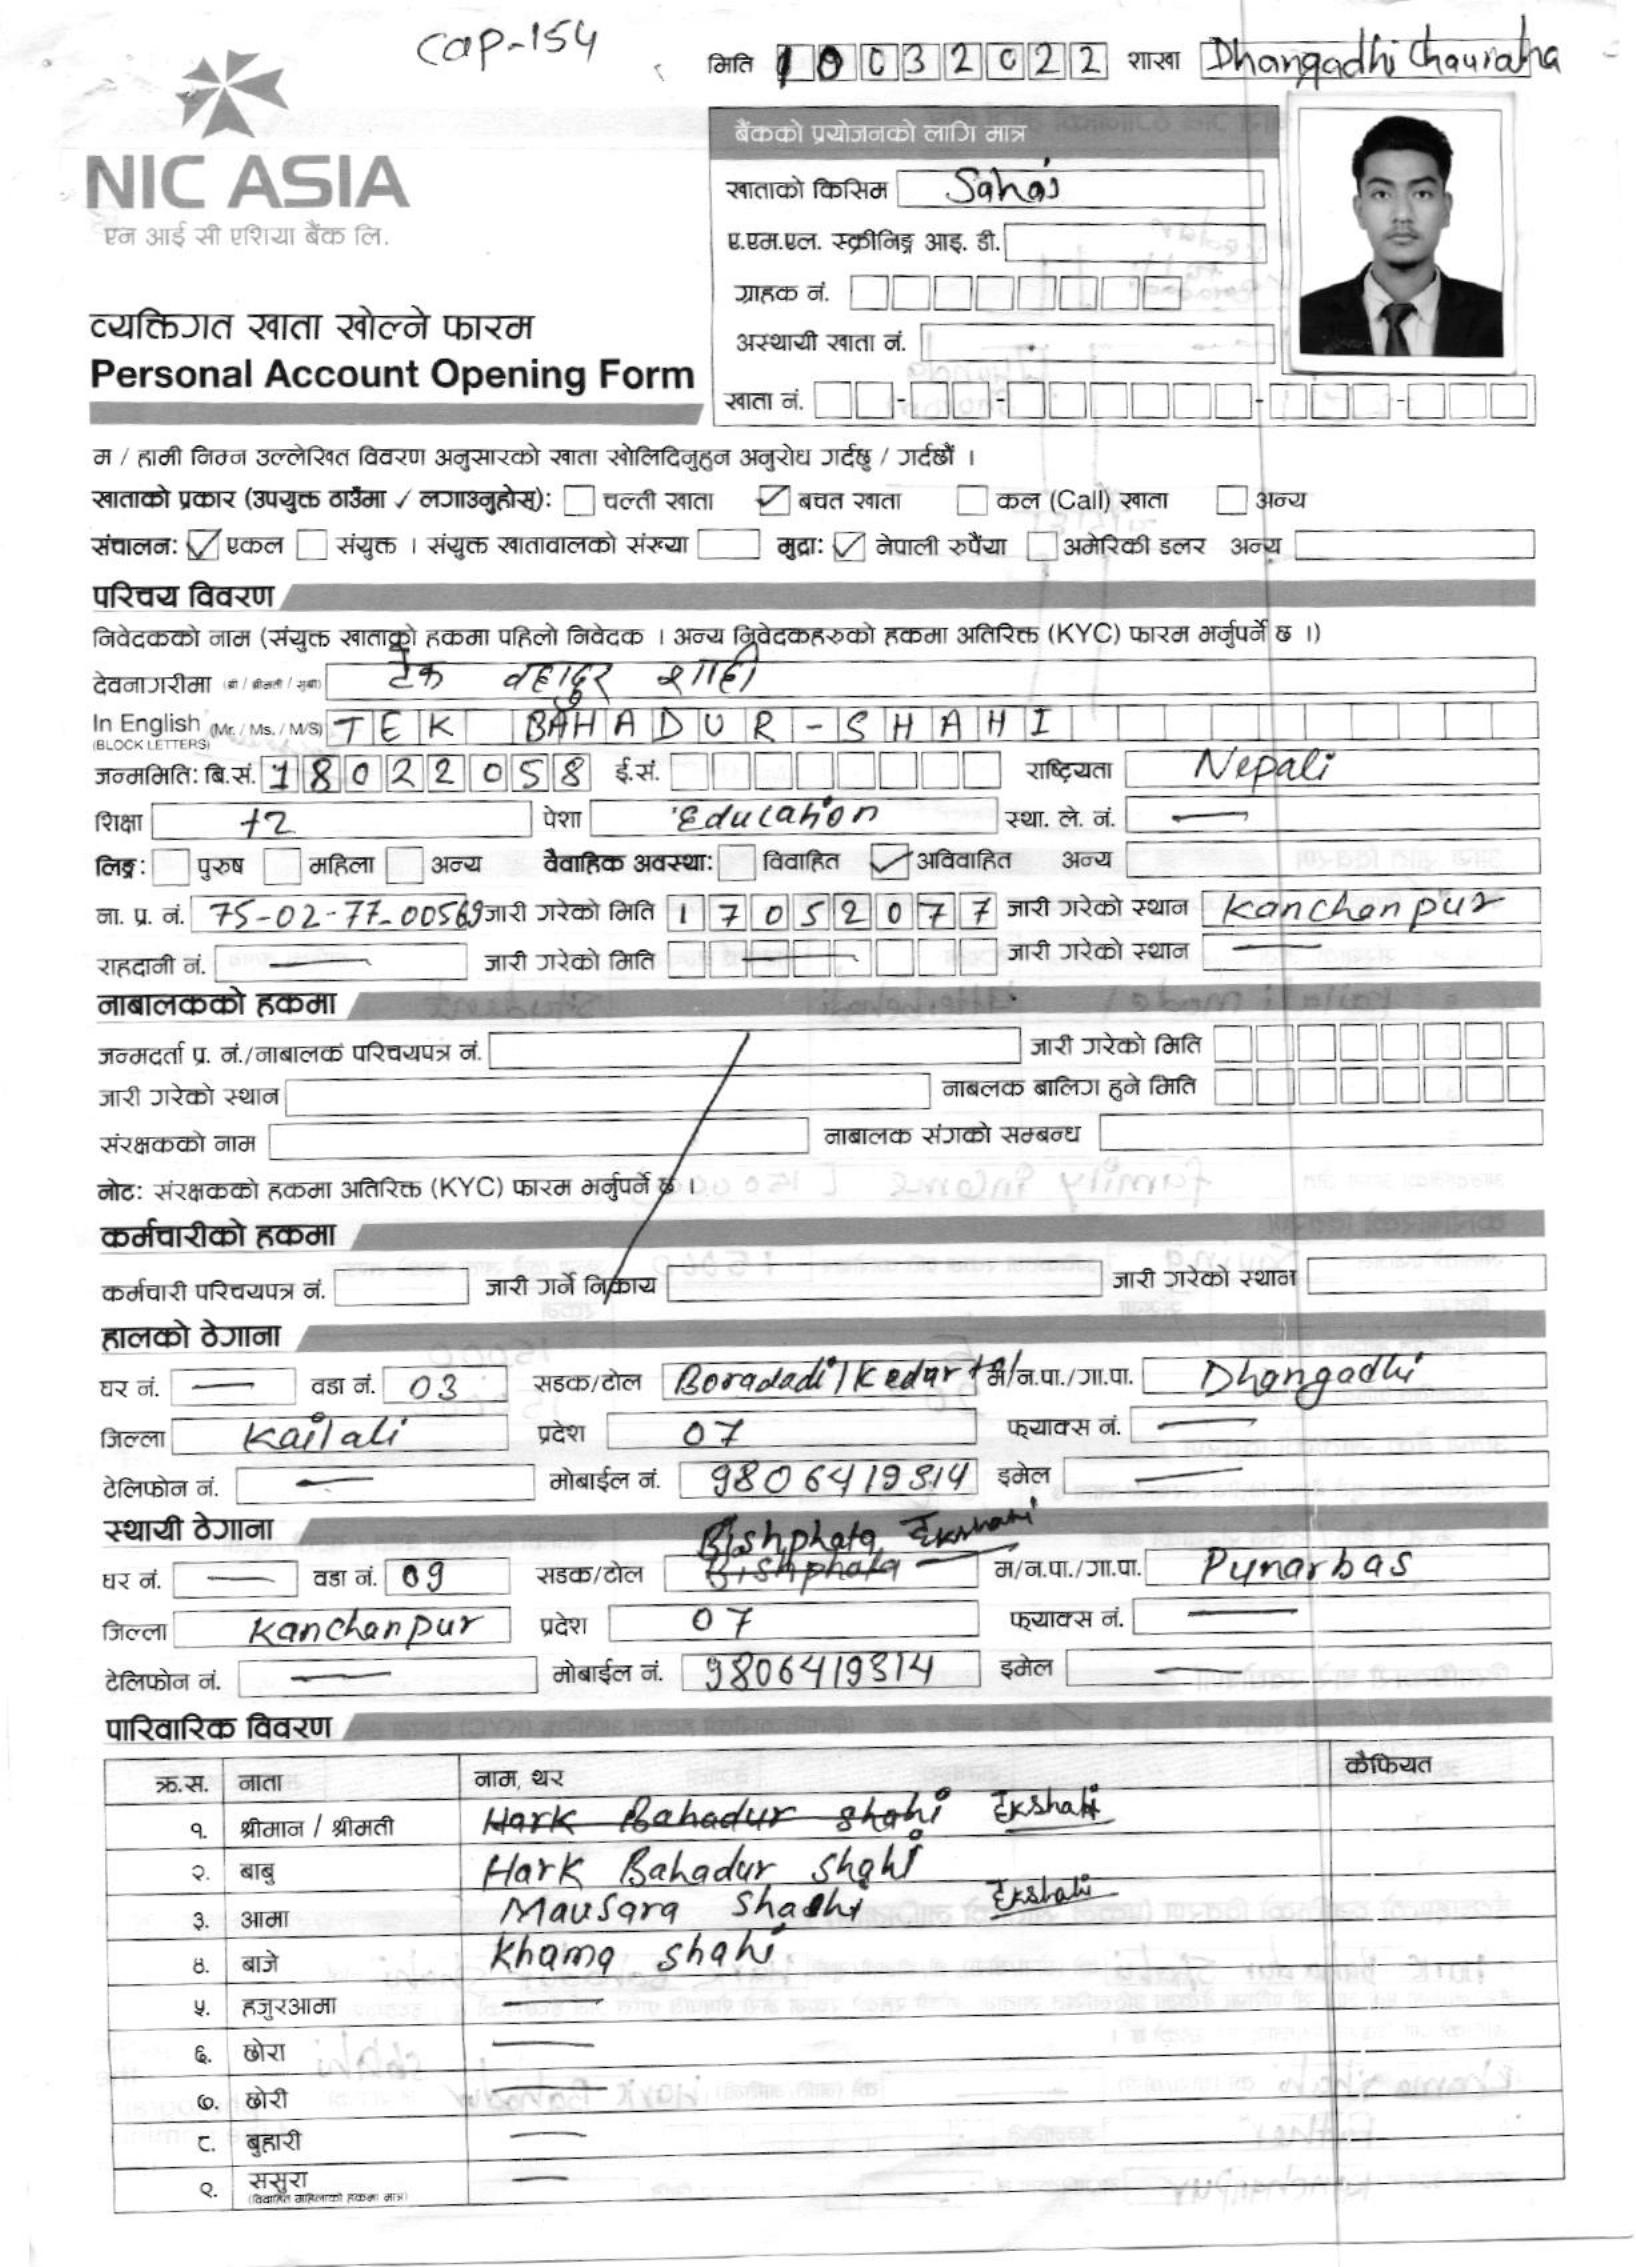 cap-154
मिति 10032022 शाखा Dhangadhi Chauraha
बैंकको प्रयोजनको लागि मात्र
NIC ASIA
एन आई सी एशिया बैंक लि.
खाताको किसिम
ए.एम.एल. स्क्रीनिङ्ग आइ. डी.
ग्राहक नं.
अस्थायी खाता नं.
खाता नं.
व्यक्तिगत खाता खोल्ने फारम
Personal Account Opening Form
म / हामी निम्न उल्लेखित विवरण अनुसारको खाता खोलिदिनुहुन अनुरोध गर्दछु / गर्दछौं ।
खाताको प्रकार (उपयुक्त ठाउँमा ✓ लगाउनुहोस्): चल्ती खाता ✓ बचत खाता कल (Call) खाता अन्य
संचालन: ✓ एकल संयुक्त । संयुक्त खातावालको संख्या मुद्रा: ✓ नेपाली रुपैंया अमेरिकी डलर अन्य
परिचय विवरण
निवेदकको नाम (संयुक्त खाताको हकमा पहिलो निवेदक । अन्य निवेदकहरुको हकमा अतिरिक्त (KYC) फारम भर्नुपर्ने छ ।)
देवनागरीमा (श्री / श्रीमती / सुश्री) टेक बहादुर शाही
In English (Mr. / Ms. / M/S) TEK BAHADUR-SHAHI
(BLOCK LETTERS)
जन्ममिति: बि.सं. 18022058 ई.सं. राष्ट्रियता Nepali
शिक्षा +2 पेशा Education स्था. ले. नं. —
लिङ्ग: पुरुष महिला अन्य वैवाहिक अवस्था: विवाहित ✓ अविवाहित अन्य
ना. प्र. नं. 75-02-77-00569 जारी गरेको मिति 17052077 जारी गरेको स्थान Kanchanpur
राहदानी नं. — जारी गरेको मिति — जारी गरेको स्थान —
नाबालकको हकमा
जन्मदर्ता प्र. नं./नाबालक परिचयपत्र नं. जारी गरेको मिति
जारी गरेको स्थान नाबलक बालिग हुने मिति
संरक्षकको नाम नाबालक संगको सम्बन्ध
नोट: संरक्षकको हकमा अतिरिक्त (KYC) फारम भर्नुपर्ने छ ।
कर्मचारीको हकमा
कर्मचारी परिचयपत्र नं. जारी गर्ने निकाय जारी गरेको स्थान
हालको ठेगाना
घर नं. — वडा नं. 03 सडक/टोल Boradadi / Kedar म/न.पा./गा.पा. Dhangadhi
जिल्ला Kailali प्रदेश 07 फ्याक्स नं. —
टेलिफोन नं. — मोबाईल नं. 9806419314 इमेल —
स्थायी ठेगाना
Bishphata Ekshahi
घर नं. — वडा नं. 09 सडक/टोल Bishphata म/न.पा./गा.पा. Punarbas
जिल्ला Kanchanpur प्रदेश 07 फ्याक्स नं. —
टेलिफोन नं. — मोबाईल नं. 9806419314 इमेल —
पारिवारिक विवरण
क्र.स. नाता नाम, थर कैफियत
१. श्रीमान / श्रीमती Hark Bahadur Shahi Ekshahi
२. बाबु Hark Bahadur Shahi
३. आमा Mausara Shahi Ekshahi
४. बाजे Khama Shahi
५. हजुरआमा —
६. छोरा —
७. छोरी —
८. बुहारी —
९. ससुरा —
(विवाहित महिलाको हकमा मात्र)